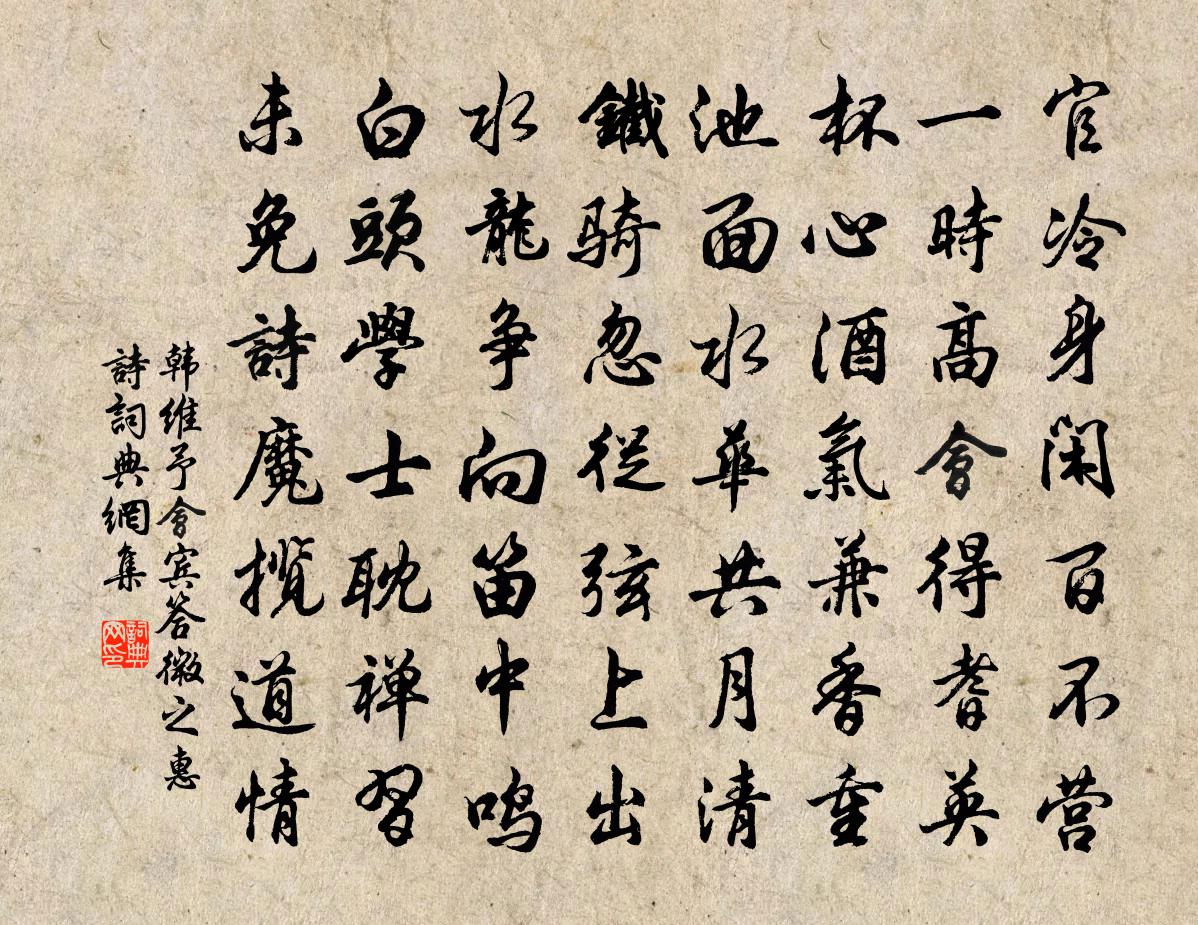 官冷身闲百不营
一時高會得耆英
杯心酒氣兼香重
池面水華共月清
鐵騎忽從弦上出
水龍争向笛中鸣
白頭學士耽禅習
未免詩魔攪道情
韩維予會宾答微之惠
詩詞典網集
詞典
网印